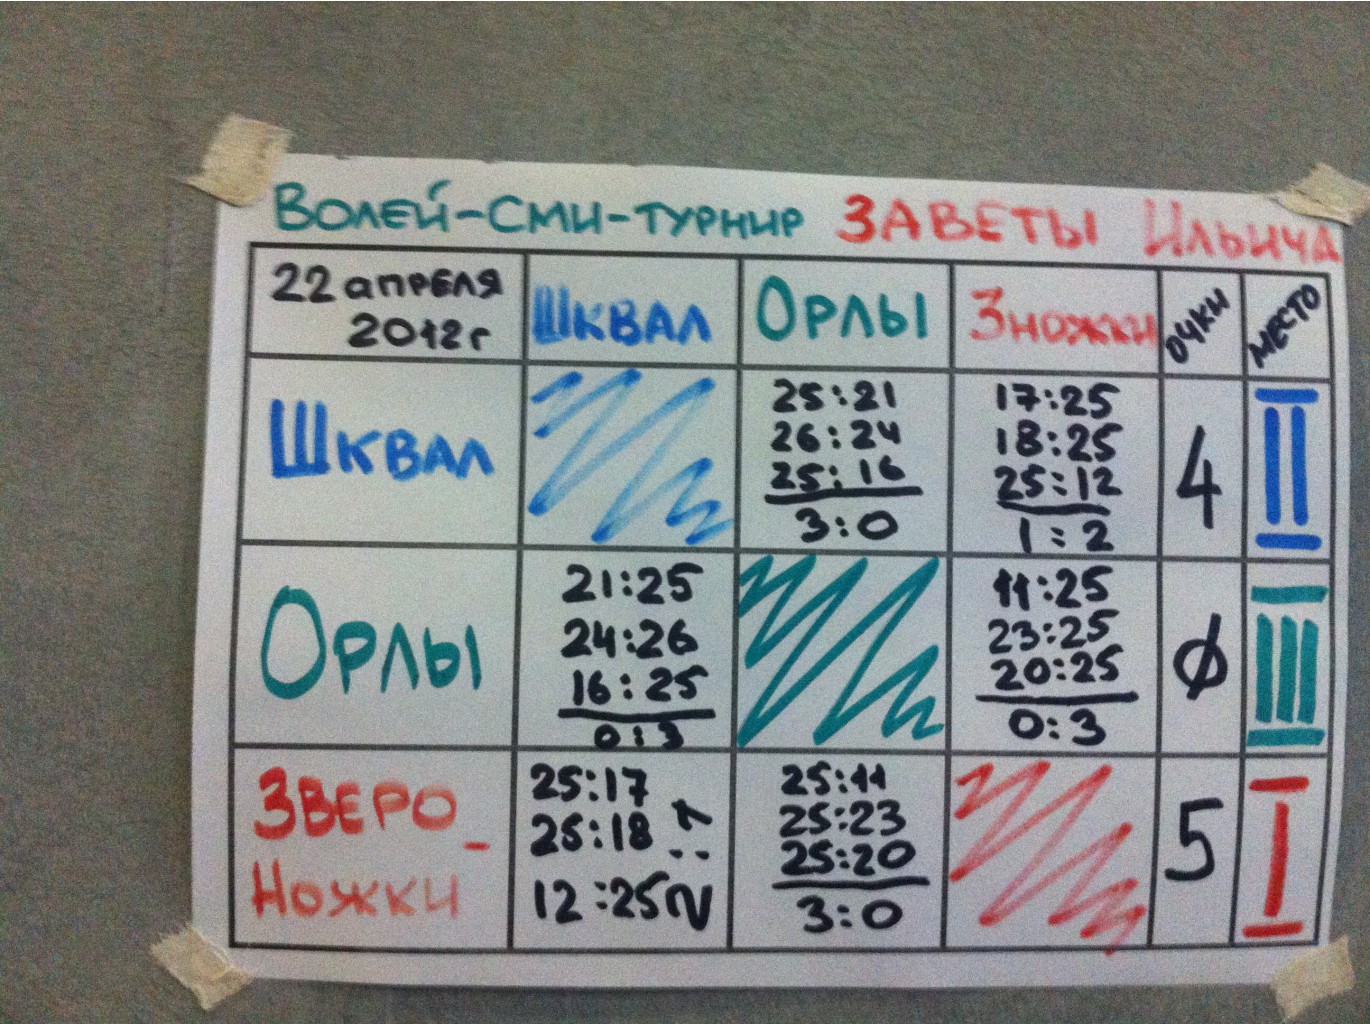 Волей-сми-турнир Заветы Ильича
22 апреля
2012г
Шквал
Орлы
Зножки
очки
место
Шквал
25:21
26:24
25:16
3:0
17:25
18:25
25:12
1:2
4
II
Орлы
21:25
24:26
16:25
0:3
11:25
23:25
20:25
0:3
0
III
Зверо-
Ножки
25:17
25:18
12:25
2:1
25:11
25:23
25:20
3:0
5
I